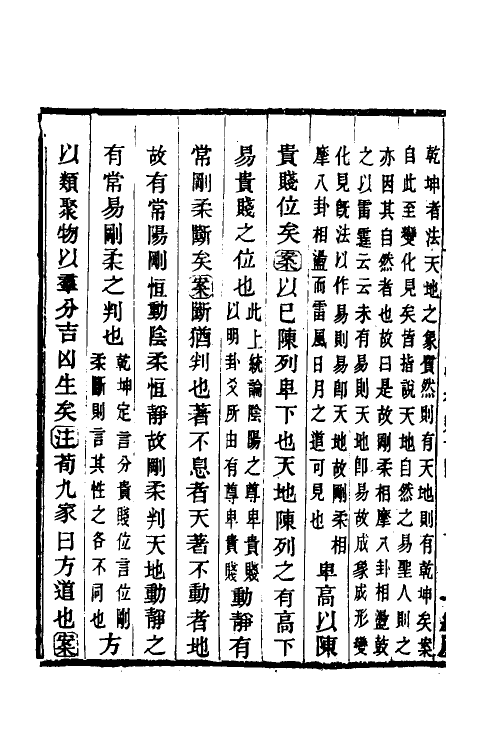 乾坤者法天地之象實然則有天地則有乾坤矣案
自此至變化見矣皆指說天地自然之易聖人則之
亦因其自然者也故曰是故剛柔相摩八卦相盪鼓
之以雷霆云云未有易則天地卽易故成象成形變
化見旣法以作易則易卽天地故剛柔相
摩八卦相盪而雷風日月之道可見也
卑高以陳
貴賤位矣案以已陳列卑下也天地陳列之有高下
易貴賤之位也
此上統論陰陽之尊卑貴賤
以明卦爻所由有尊卑貴賤
動靜有
常剛柔斷矣案斷猶判也著不息者天著不動者地
故有常陽剛恒動陰柔恒靜故剛柔判天地動靜之
有常易剛柔之判也
乾坤定言分貴賤位言位剛
柔斷則言其性之各不同也
方
以類聚物以羣分吉凶生矣注荀九家曰方道也案